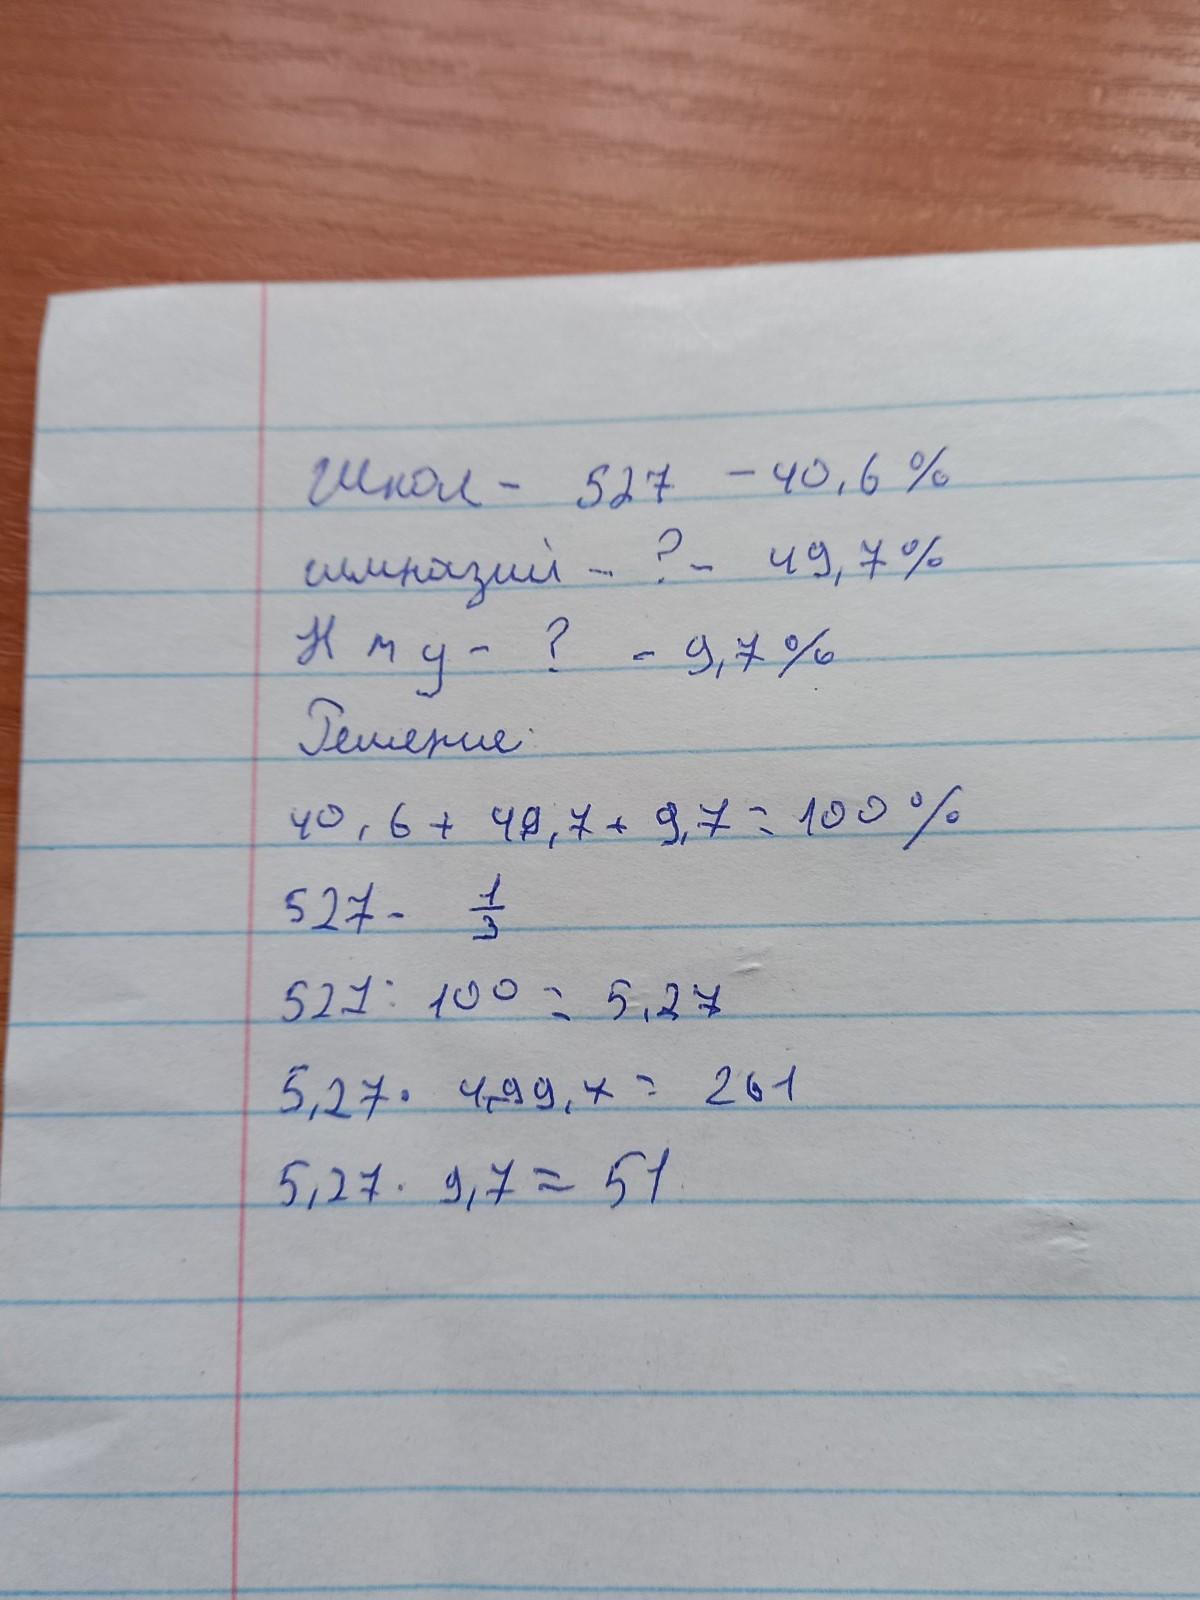 Школ - 527 - 40,6%
гимназий - ? - 49,7%
Н м у - ? - 9,7%
Решение:
40,6 + 49,7 + 9,7 = 100%
527 - 1/3
527 : 100 = 5,27
5,27 · 4,99,7 = 261
5,27 · 9,7 = 51